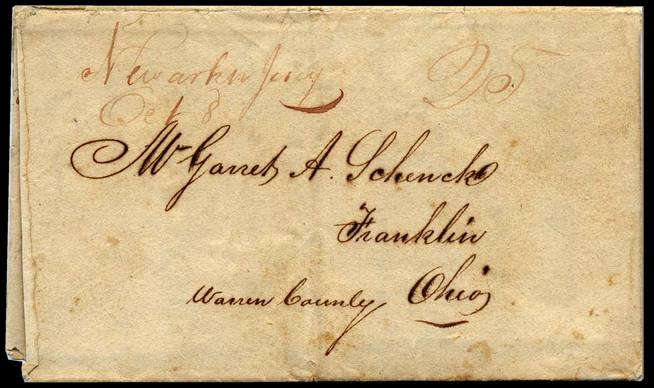 Newark N Jersey 25
Oct 8
Mr Garret A. Schenck
Franklin
Warren County Ohio